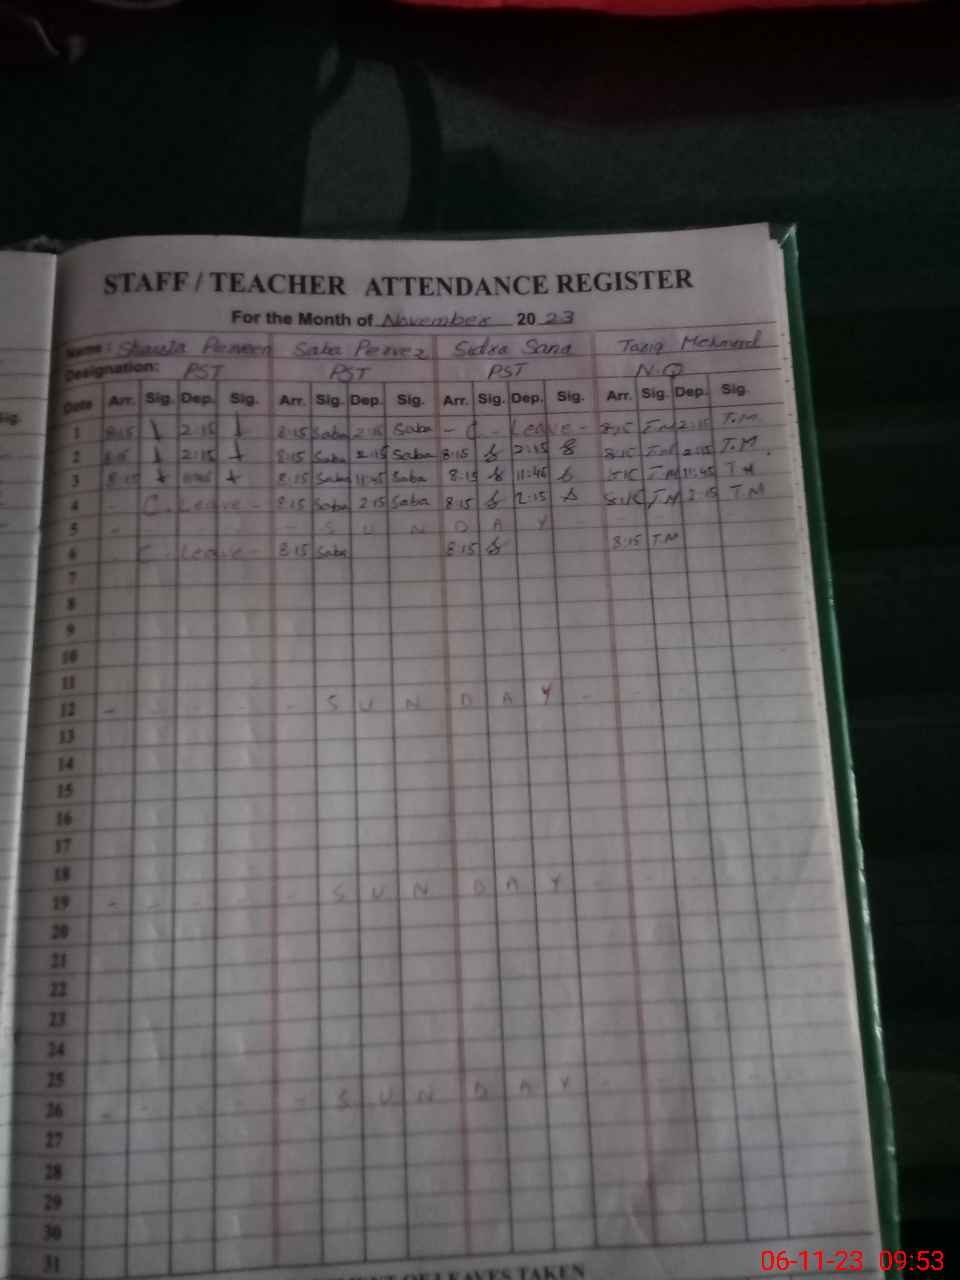 STAFF / TEACHER ATTENDANCE REGISTER
For the Month of November 20 23
Name: Perveen Saba Pervez Sidra Sana Tariq Mehmood
Designation: PST PST PST N.Q
Date Arr. Sig. Dep. Sig. Arr. Sig. Dep. Sig. Arr. Sig. Dep. Sig. Arr. Sig. Dep. Sig.
Sig.
1 8:15 2:15 8:15 Saba 2:15 Saba - C - Leave - 8:15 T.M 2:15 T.M.
2 8:15 2:15 8:15 Saba 2:15 Saba 8:15 2:15 8:15 T.M 2:15 T.M.
3 8:15 11:45 8:15 Saba 11:45 Saba 8:15 11:45 8:15 T.M 11:45 T.M
4 - C. Leave - 8:15 Saba 2:15 Saba 8:15 2:15 8:15 T.M 2:15 T.M
5 - - - - - S U N D A Y
6 C - Leave - 8:15 Saba 8:15 8:15 T.M
7
8
9
10
11
12 - - - - - S U N D A Y - - - -
13
14
15
16
17
18
19 - - - - - S U N D A Y - - - -
20
21
22
23
24
25
26 - - - - - S U N D A Y - - - -
27
28
29
30
31
OF LEAVES TAKEN
06-11-23 09:53